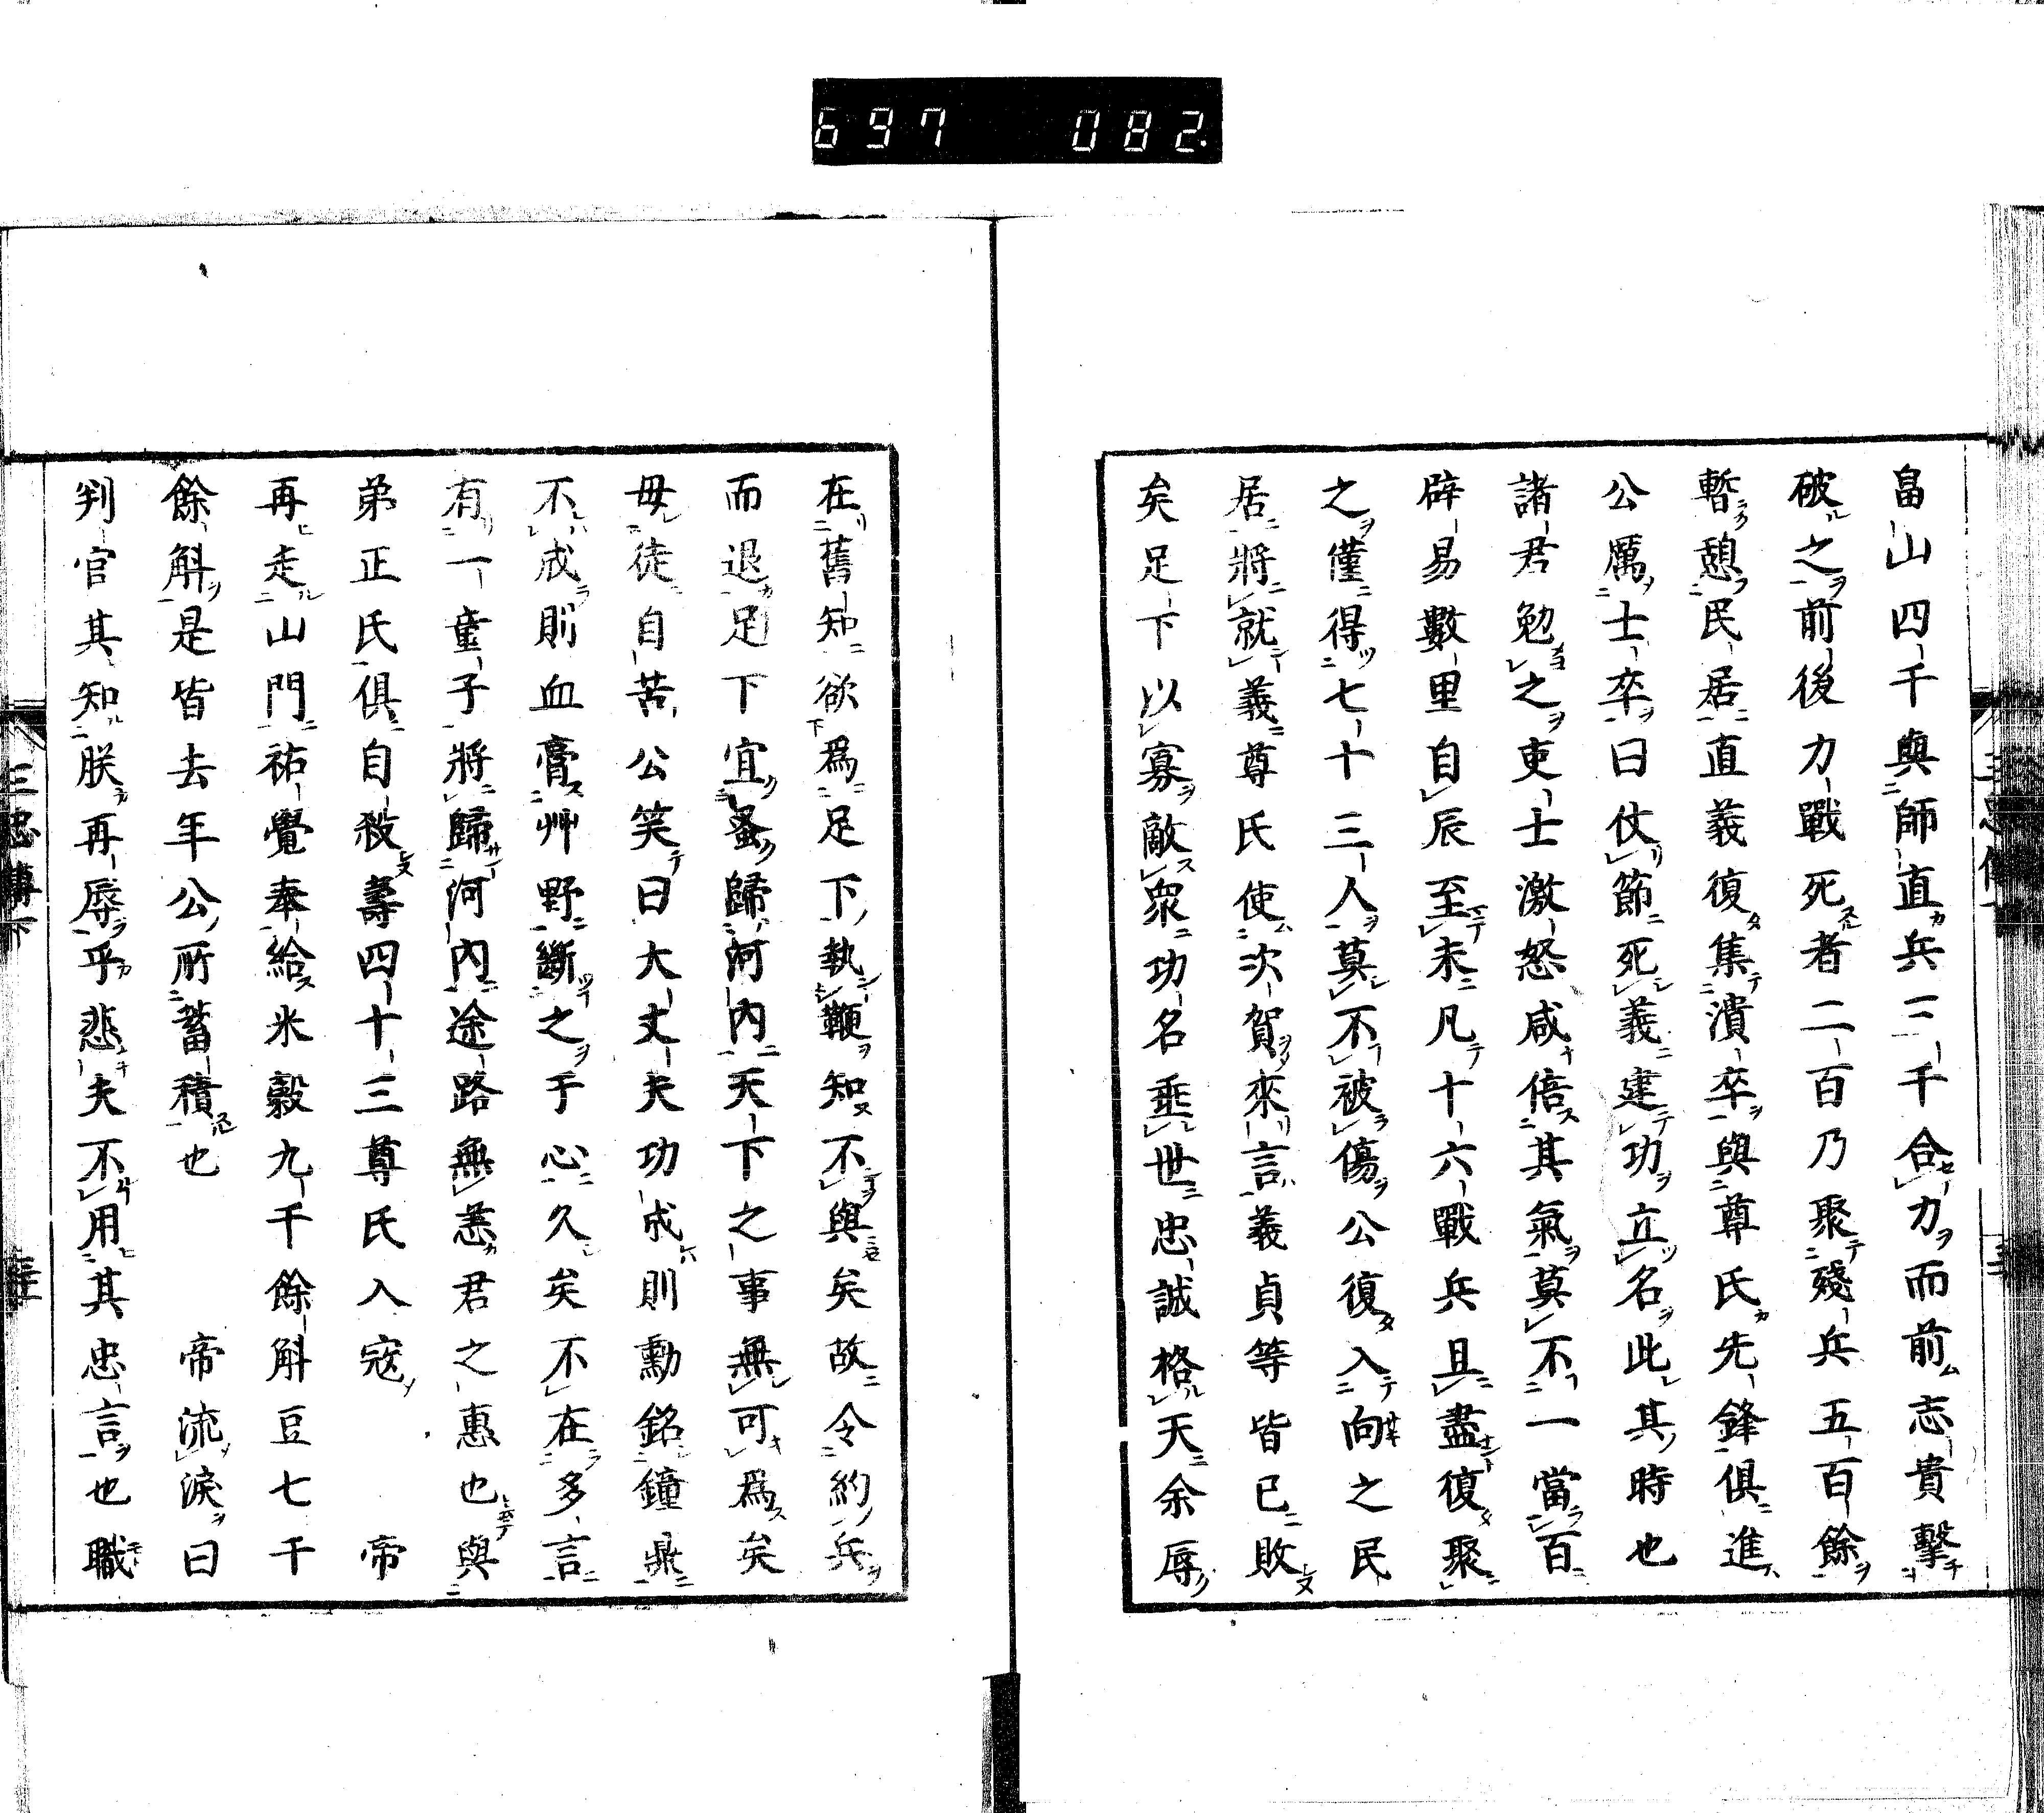 697 082
畠山四千與師直兵三千合力而前志貴擊
破之前後力戰死者二百乃聚殘兵五百餘
暫憩民居直義復集潰卒與尊氏先鋒俱進
公厲士卒曰仗節死義建功立名此其時也
諸君勉之吏士激怒咸倍其氣莫不一當百
辟易數里自辰至未凡十六戰兵且盡復聚
之僅得七十三人莫不被傷公復入向之民
居將就義尊氏使次賀來言義貞等皆已敗
矣足下以寡敵衆功名垂世忠誠格天余辱
在舊知欲爲足下執鞭知不與矣故令約兵
而退足下宜蚤歸河内天下之事無可爲矣
毋徒自苦公笑曰大丈夫功成則勳銘鐘鼎
不成則血膏艸野斷之于心久矣不在多言
有一童子將歸河内途路無恙君之惠也與
弟正氏俱自殺壽四十三尊氏入寇　帝
再走山門祐覺奉給米穀九千餘斛豆七千
餘斛是皆去年公所蓄積也　帝流淚曰
判官其知朕再辱乎悲夫不用其忠言也職
三忠傳下